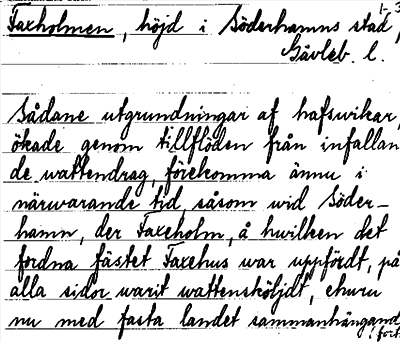 1-3
Faxholmen, höjd i Söderhamns stad,
Gävleb. l.
Sådane utgrundningar af hafswikar,
ökade genom tillflöden från infallan
de wattendrag, förekomma ännu i
närwarande tid, såsom wid Söder-
hamn, der Faxeholm, å hwilken det
fordna fästet Faxehus war uppfördt, på
alla sidor warit wattensköljdt, ehuru
nu med fasta landet sammanhängand
(forts.